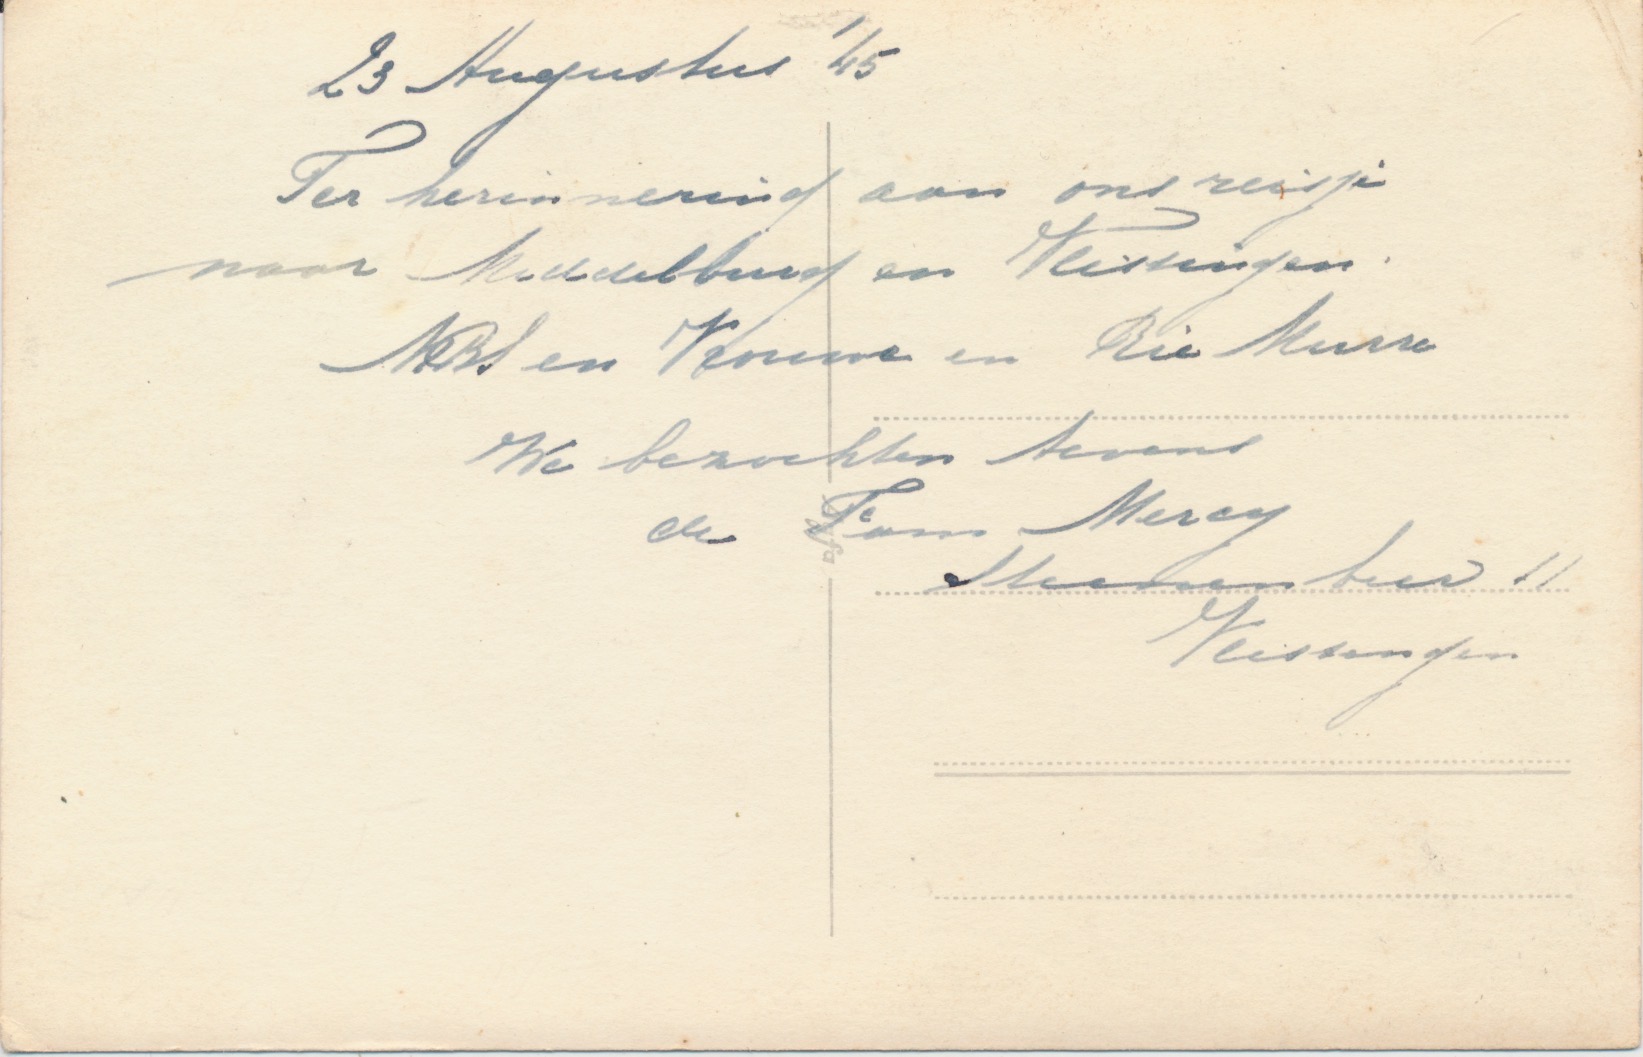 23 Augustus '45
Ter herinnering aan ons reisje
naar Middelburg en Vlissingen.
en Vrouwe en Rie Murre
We bezochten tevens
de Fam Mercy
11
Vlissingen